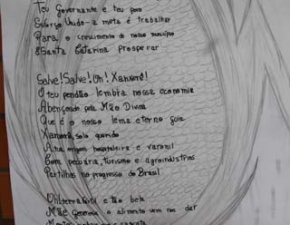 Teu governante e teu povo
Esforço Unido-a meta é trabalhar
Para, o crescimento do nosso município
E Santa Catarina prosperar
Salve! Salve! Oh! Xanxerê!
O teu pendão lembra nossa economia
Abençoado pela Mão Divina
Que é o nosso lema eterno guia
Xanxerê, solo querido
Ana origem hospitaleira e varonil
Com pecuária, turismo e agroindústrias
Partilhas no progresso do Brasil
tão bela
Mãe generosa o alimento vem nos dar